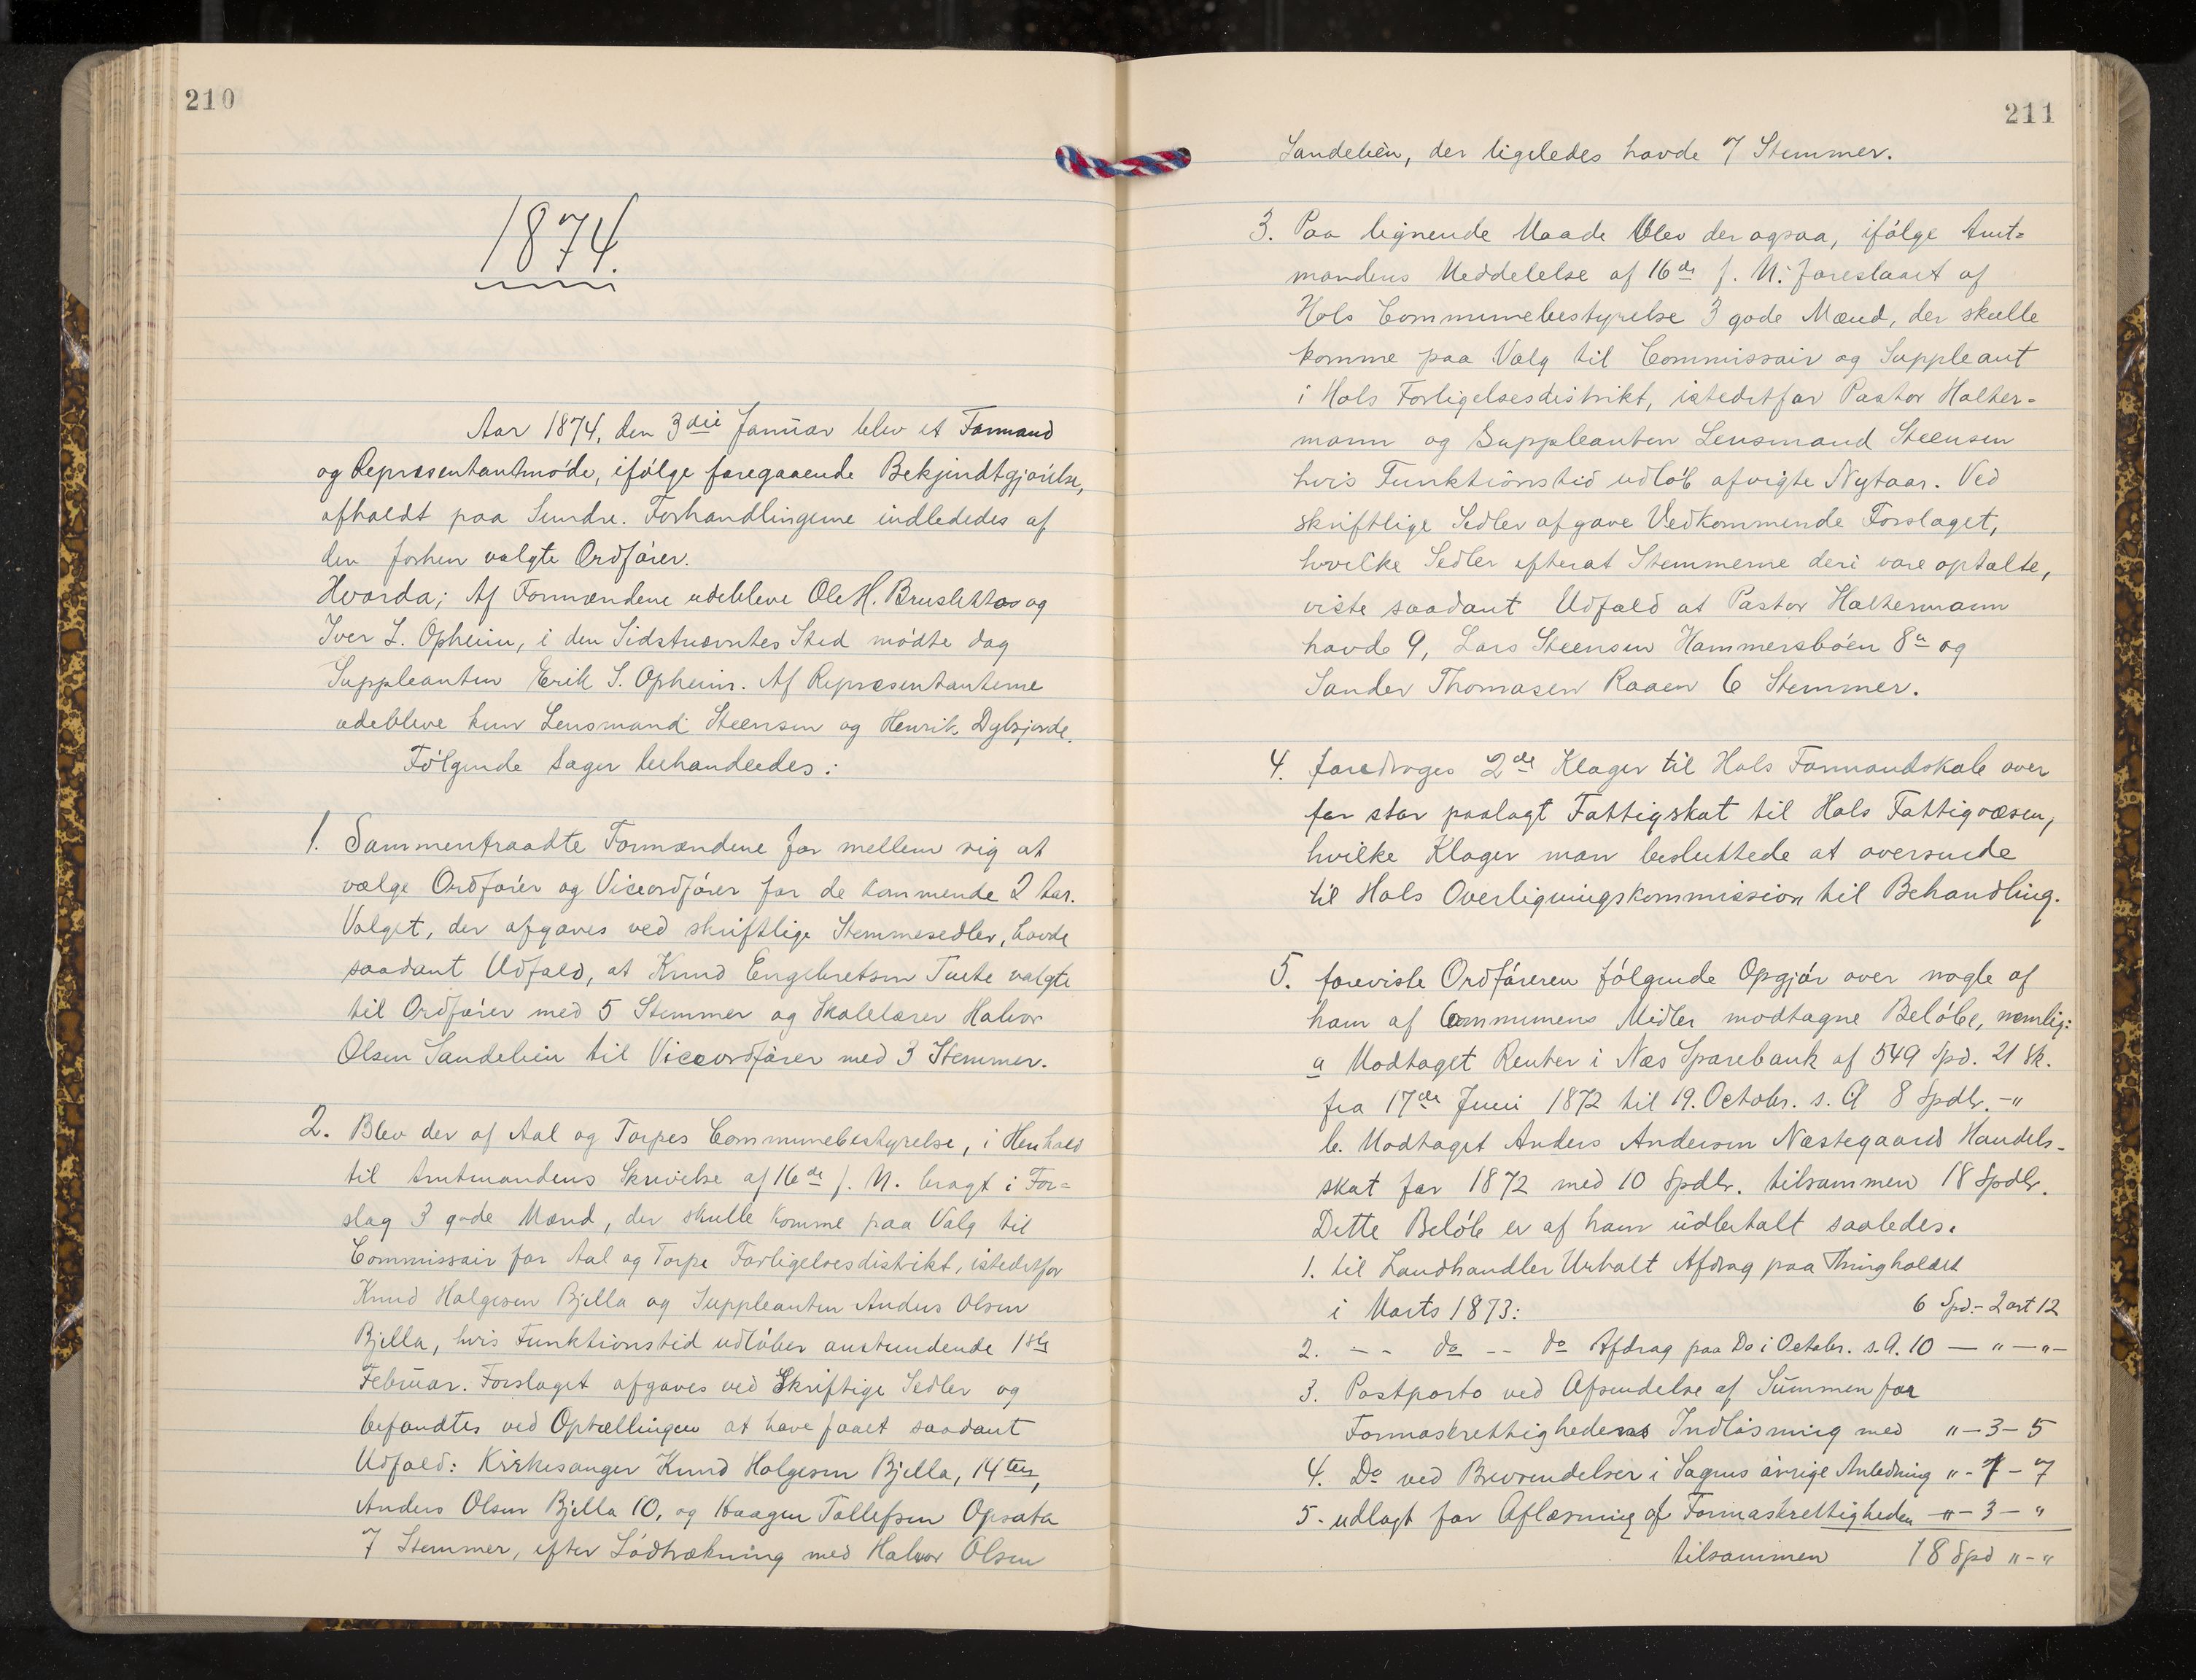 210
1874.
Aar 1874, den 3die Januar blev et Formand
og Repræsentantmøde, ifølge foregaaende Bekjendtgjørelse,
afholdt paa Sundre. Forhandlingerne indlededes af
den forhen valgte Ordfører.
Hvorda; Af Formændene udebleve Ole H. Bruslettos og
Iver L. Opheim, i den Sidstnævntes Sted mødte dog
Suppleanten Erik S. Opheim. Af Repræsentanterne
udebleve kun Lensmand Steensen og Henrik Dybsjorde.
Følgende Sager behandledes:
1. Sammentraadte Formændene for mellem sig at
vælge Ordfører og Viceordfører for de kommende 2 Aar.
Valget, der afgaves ved skriftlige Stemmesedler, havde
saadant Udfald, at Knud Engebretsen Tuete valgte
til Ordfører med 5 Stemmer og Skolelærer Halvor
Olsen Sandelien til Viceordfører med 3 Stemmer.
2. Blev der af Aal og Torpes Communebestyrelse, i Henhold
til Amtmandens Skrivelse af 16de f. M. bragt i For=
slag 3 gode Mænd, der skulle komme paa Valg til
Commissair for Aal og Torpe Forligelsesdistrikt, istedetfor
Knud Holgesen Bjella og Suppleanten Anders Olsen
Bjella, hvis Funktionstid udløber anstundende 1ste
Februar. Forslaget afgaves ved Skriftige Sedler og
befandtes ved Optællingen at have faaet saadant
Udfald: Kirkesanger Knud Holgesen Bjella, 14ten,
Anders Olsen Bjella 10, og Haagen Tollefsen Opsata
7 Stemmer, efter Lodtrækning med Halvor Olsen
211
Sandelien, der ligeledes havde 7 Stemmer.
3. Paa lignende Maade blev der ogsaa, ifølge Amt=
mandens Meddelelse af 16de f. M. foreslaaet af
Hols Communebestyrelse 3 gode Mænd, der skulle
komme paa Valg til Commissair og Suppleant
i Hols Forligelsesdistrikt, istedetfor Pastor Halter=
mann og Suppleanten Lensmand Steensen
hvis Funktionstid udløb afvigte Nytaar. Ved
skriftlige Sedler afgave Vedkommende Forslaget,
hvilke Sedler efterat Stemmerne deri vare optalte,
viste saadant Udfald at Pastor Haltermann
havde 9, Lars Steensen Hammersbøen 8a og
Sander Thomasen Raaen 6 Stemmer.
4. foredroges 2de Klager til Hols Formandskab over
for stor paalagt Fattigskat til Hols Fattigvæsen,
hvilke Klager man besluttede at oversende
til Hols Overligningskommission til Behandling.
5. foreviste Ordføreren følgende Opgjør over nogle af
ham af Communens Midler modtagne Beløbe, nemlig:
a Modtaget Renter i Næs Sparebank af 549 Spd. 21 Sk.
fra 17de Juni 1872 til 19. Octobr. s. A 8 Spdlr. -"
b. Modtaget Anders Andersen Næstegaards Handels-
skat for 1872 med 10 Spdlr. tilsammen 18 Spdlr.
Dette Beløb er af ham udbetalt saaledes.
1. til Landhandler Uthalt Afdrag paa Thingholdet
i Marts 1873: 6 Spd.- 2 ort 12
2. - - do - - do Afdrag paa Do i Octobr. s. A. 10 — " — " —
3. Postporto ved Afsendelse af Summen for
Formaskrettighedens Indløsning med " - 3 - 5
4. Do ved Brevsendelser i Sagens øvrige Anledning " - 1 - 7
5. udlagt for Aflæsning af Formaskrettigheden " - 3 - "
tilsammen 18 Spd " - "